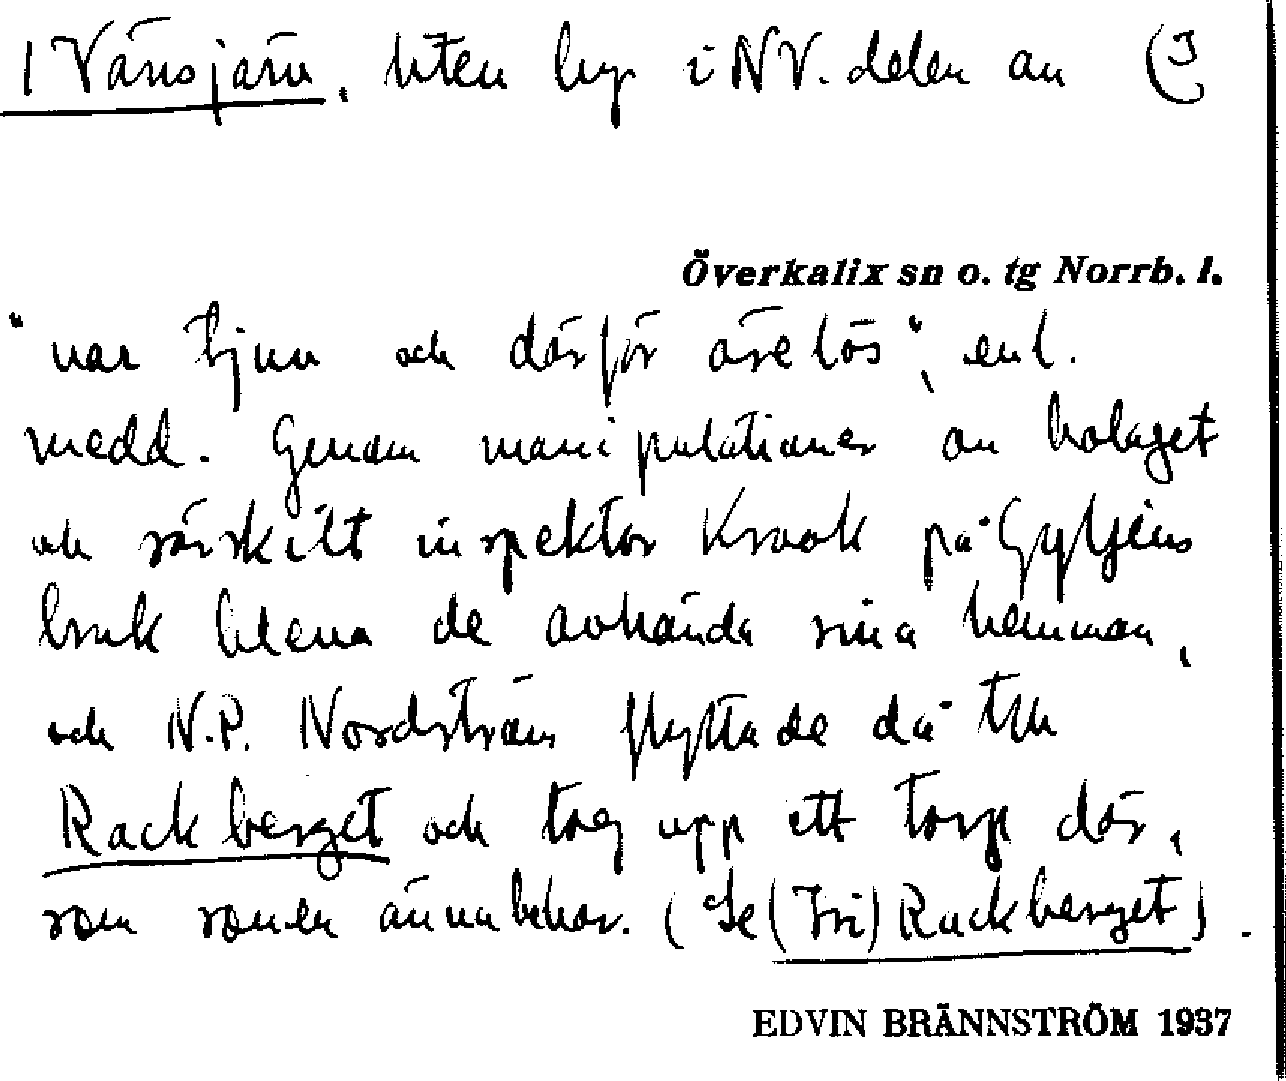 1 Vänsjärv. Liten by i NV. delen av (3
Överkalix sn o. tg Norrb. l.
"var tjuv och därför ärelös", enl.
medd. Genom manipulationer av bolaget
och särskilt inspektor Kraok på Gyljens
bruk blevo de avhända sina hemman,
och N.P. Nordström flyttade då till
Rackberget och tog upp ett torp där,
som sonen ännu bebor. (Se (Fri) Rackberget).
EDVIN BRÄNNSTRÖM 1937